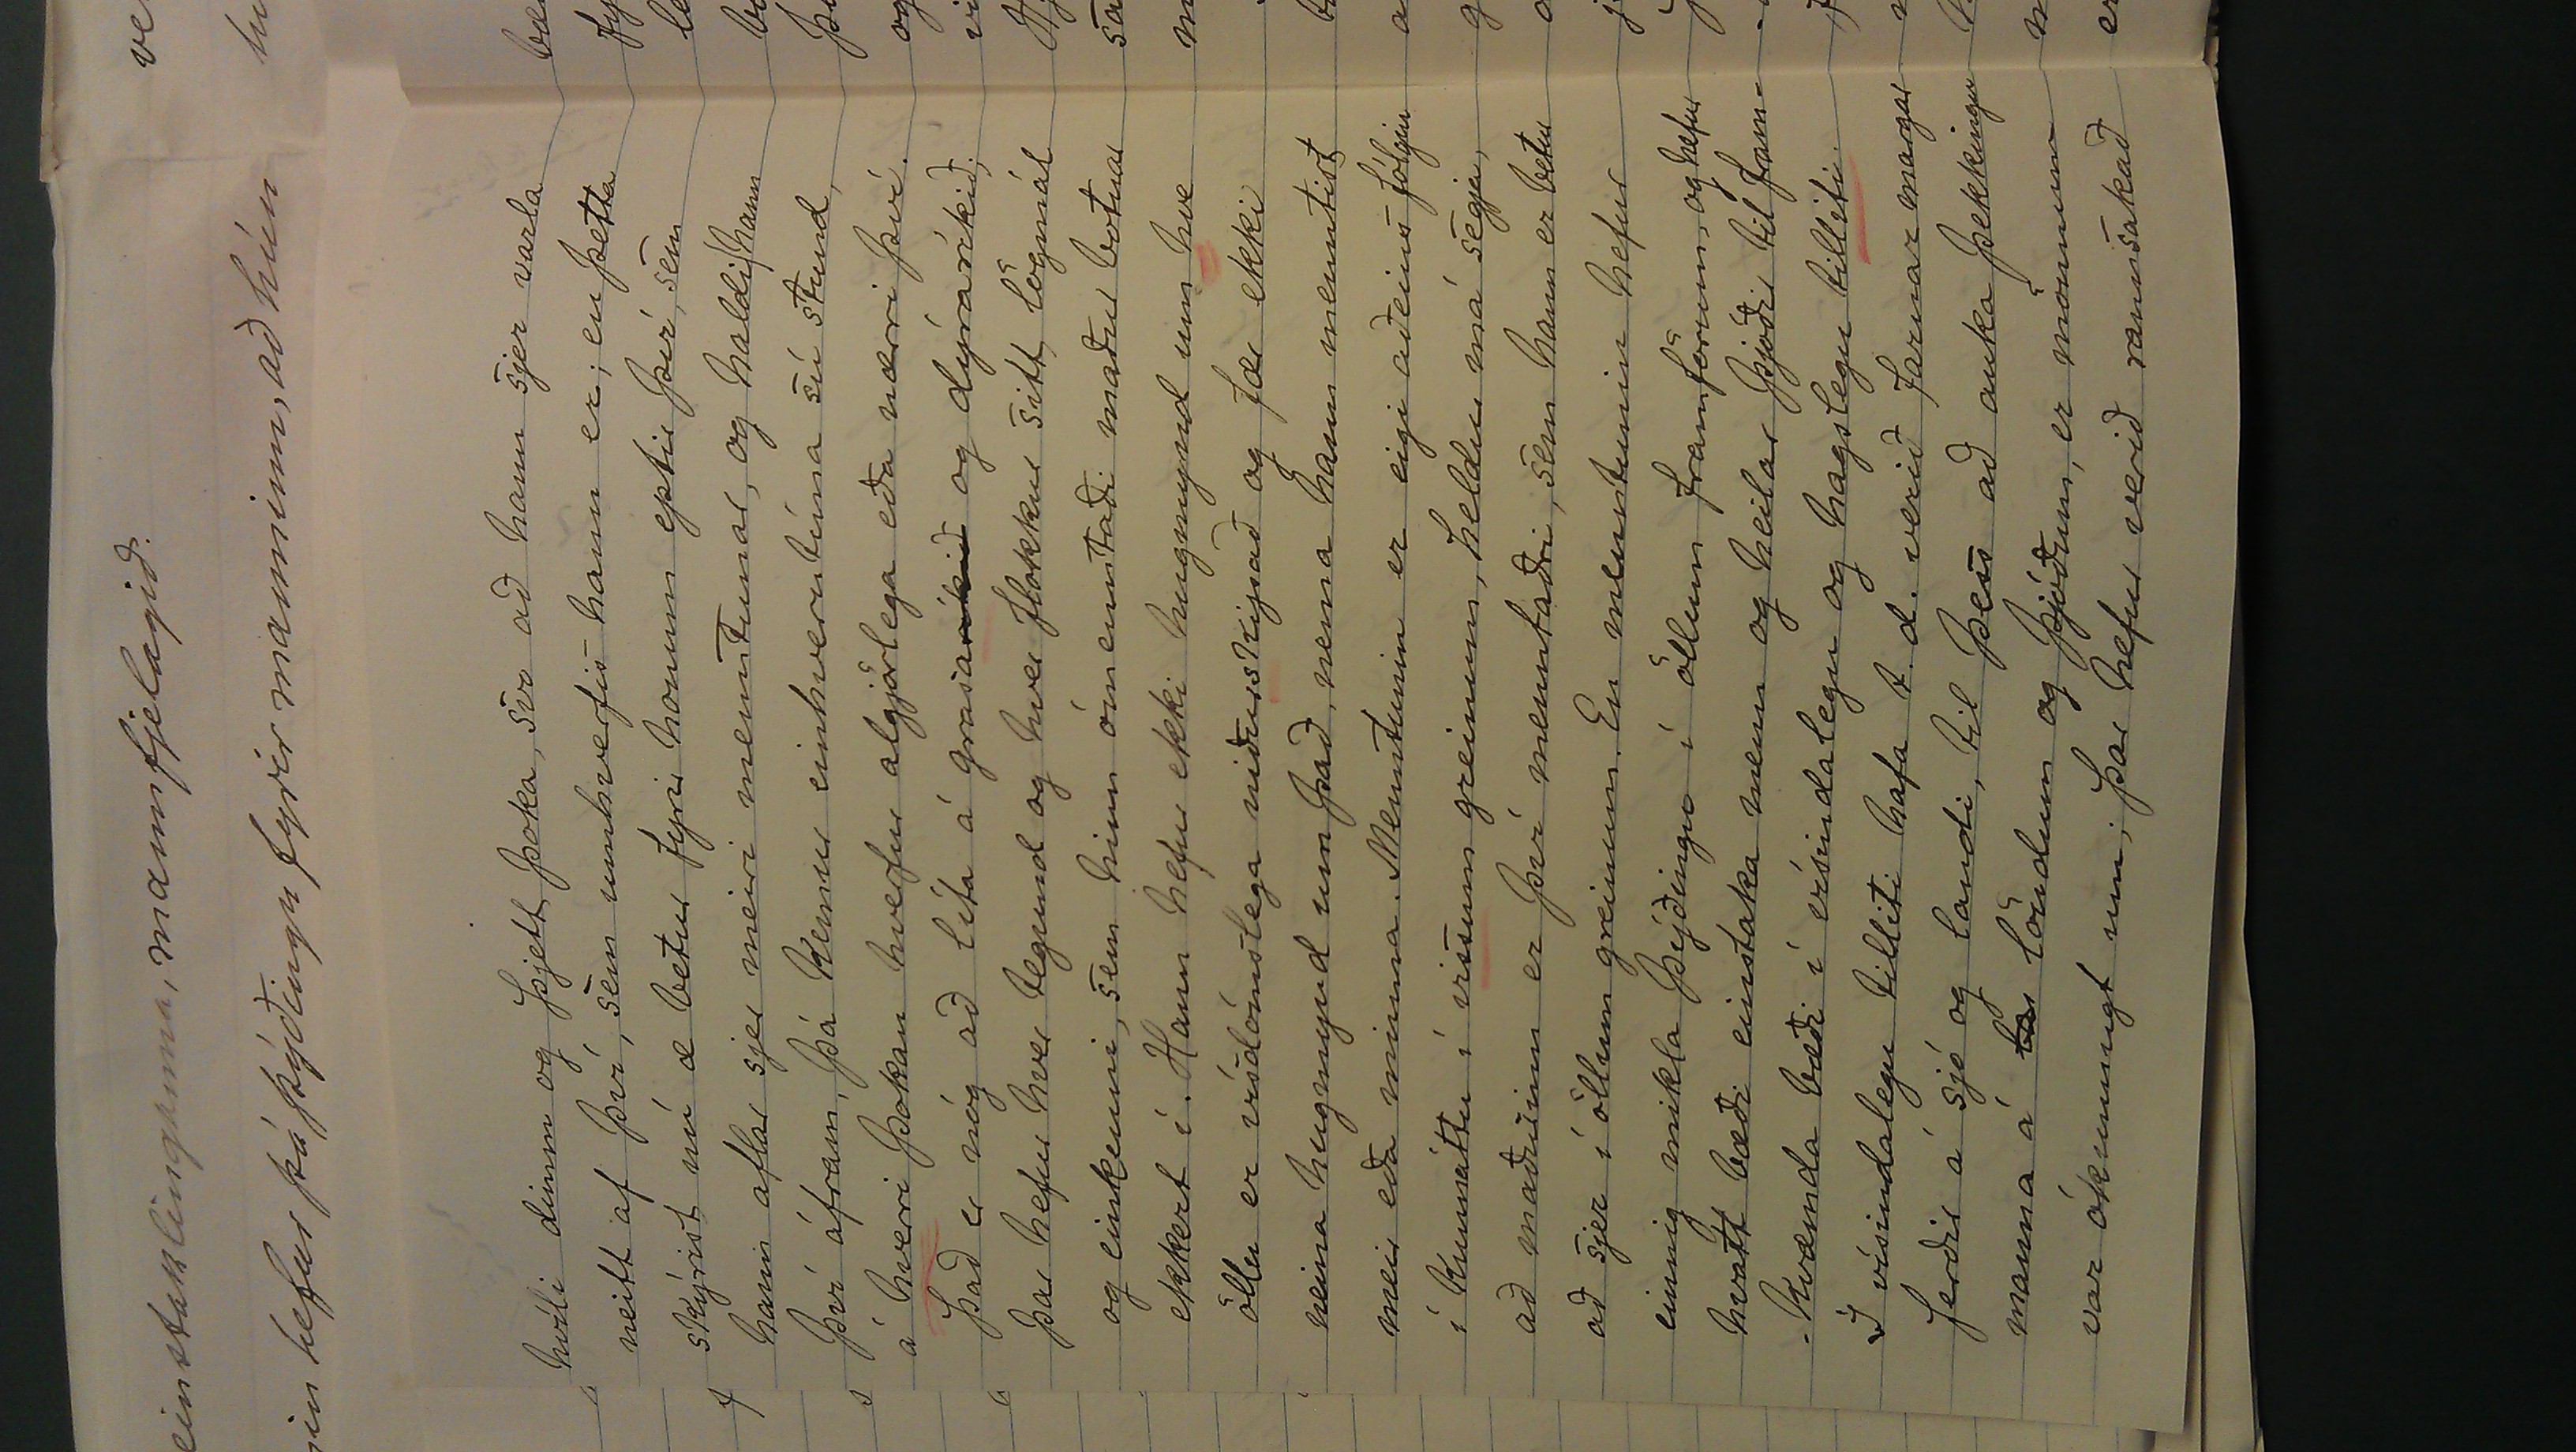 einstaklinganna, mannfjelagið.
hefur þá þýðingu fyrir manninn, að hún
hvíli dimm og þjett þoka, svo að hann sjer varla
neitt af því, sem umhverfis hann er; en þetta
skýrist nú æ betur fyrir honum eptir því, sem
hann aflar sjer meiri menntunar, og haldi hann
því áfram, þá kemur einhverntíma sú stund,
á hverri þokan hverfur algjörlega eða nærri því.
Það er nóg að líta á grasaríkið og dýraríkið;
þar hefur hver tegund og hver flokkur sitt lögmál
og einkenni, sem hinn ómenntaði maður botnar
ekkert í. Hann hefur ekki hugmynd um hve
öllu er vísdómslega niðurskipað og fær ekki
neina hugmynd um það, nema hann menntist
meir eða minna. Menntunin er eigi aðeins fólgin
í kunnáttu í vissum greinum, heldur má segja,
að maðurinn er því menntaðri, sem hann er betur
að sjer í öllum greinum. En menntunin hefur
einnig mikla þýðingu í öllum framförum, og hefur
hvatt bæði einstaka menn og heilar þjóðir til fram-
-kvæmda bæði í vísindalegu og hagslegu tilliti.
Í vísindalegu tilliti hafa t. d. verið farnar margar
ferðir á sjó og landi, til þess að auka þekkingu
manna á löndum og þjóðum, er mönnum
var ókunnugt um; þar hefur verið rannsakað